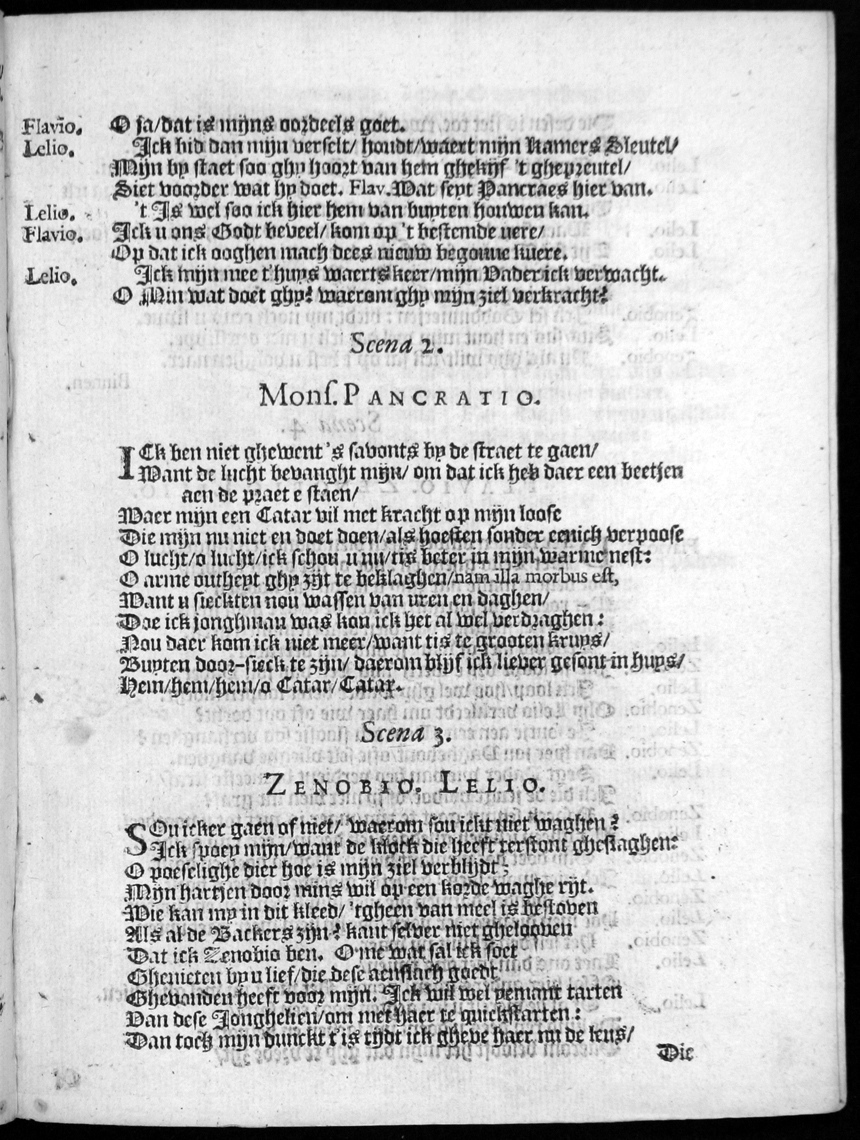 Flavio. O sa/dat is mijns oordeels goet.
Lelio. Ick bid dan mijn verselt/ houdt/waert mijn kamers Sleutel/
Mijn by staet soo ghy hoort van hem ghekijf 't ghepreutel/
Siet voorder wat hy doet. Flav. Wat seyt Pancraes hier van.
Lelio. 't Is wel soo ick hier hem van buyten houwen kan.
Flavio. Ick u ons Godt beveel/ kom op 't bestemde uere/
Op dat ick ooghen mach dees nieuw begonne kuere.
Lelio. Ick mijn mee t'huys waerts keer/mijn Vader ick verwacht.
O Min wat doet ghy? waerom ghy mijn ziel verkracht?
Scena 2.
Monſ. PANCRATIO.
ICk ben niet ghewent 's savonts by de straet te gaen/
Want de lucht bevanght mijn/ om dat ick heb daer een beetjen
aen de praet e staen/
Waer mijn een Catar vil met kracht op mijn loose
Die mijn nu niet en doet doen/als hoesten sonder eenich verpoose
O lucht/o lucht/ick schou u nu/tis beter in mijn warme nest:
O arme outheyt ghy zijt te beklaghen/nam illa morbus est,
Want u sieckten nou wassen van uren en daghen/
Doe ick jonghman was kon ick het al wel verdraghen:
Nou daer kom ick niet meer/want tis te grooten kruys/
Buyten door-sieck te zijn/ daerom blijf ick liever gesont in huys/
Hem/hem/hem/o Catar/Catar.
Scena 3.
ZENOBIO. LELIO.
SOu icker gaen of niet/ waerom sou ickt niet waghen?
Ick spoey mijn/want de klock die heeft terstont gheslaghen:
O poeselighe dier hoe is mijn ziel verblijdt,
Mijn hartjen door mins wil op een korde waghe rijt.
Wie kan my in dit kleed/ 'tgheen van meel is bestoven
Als al de Backers zijn? kant selver niet ghelooven
Dat ick Zenobio ben. O me wat sal ick soet
Ghenieten by u lief/die dese aenslach goedt
Ghevonden heeft voor mijn. Ick wil wel yemant tarten
Van dese Jonghelien/om met haer te quickstarten:
Dan toch mijn dunckt t'is tijdt ick gheve haer nu de leus/
Die